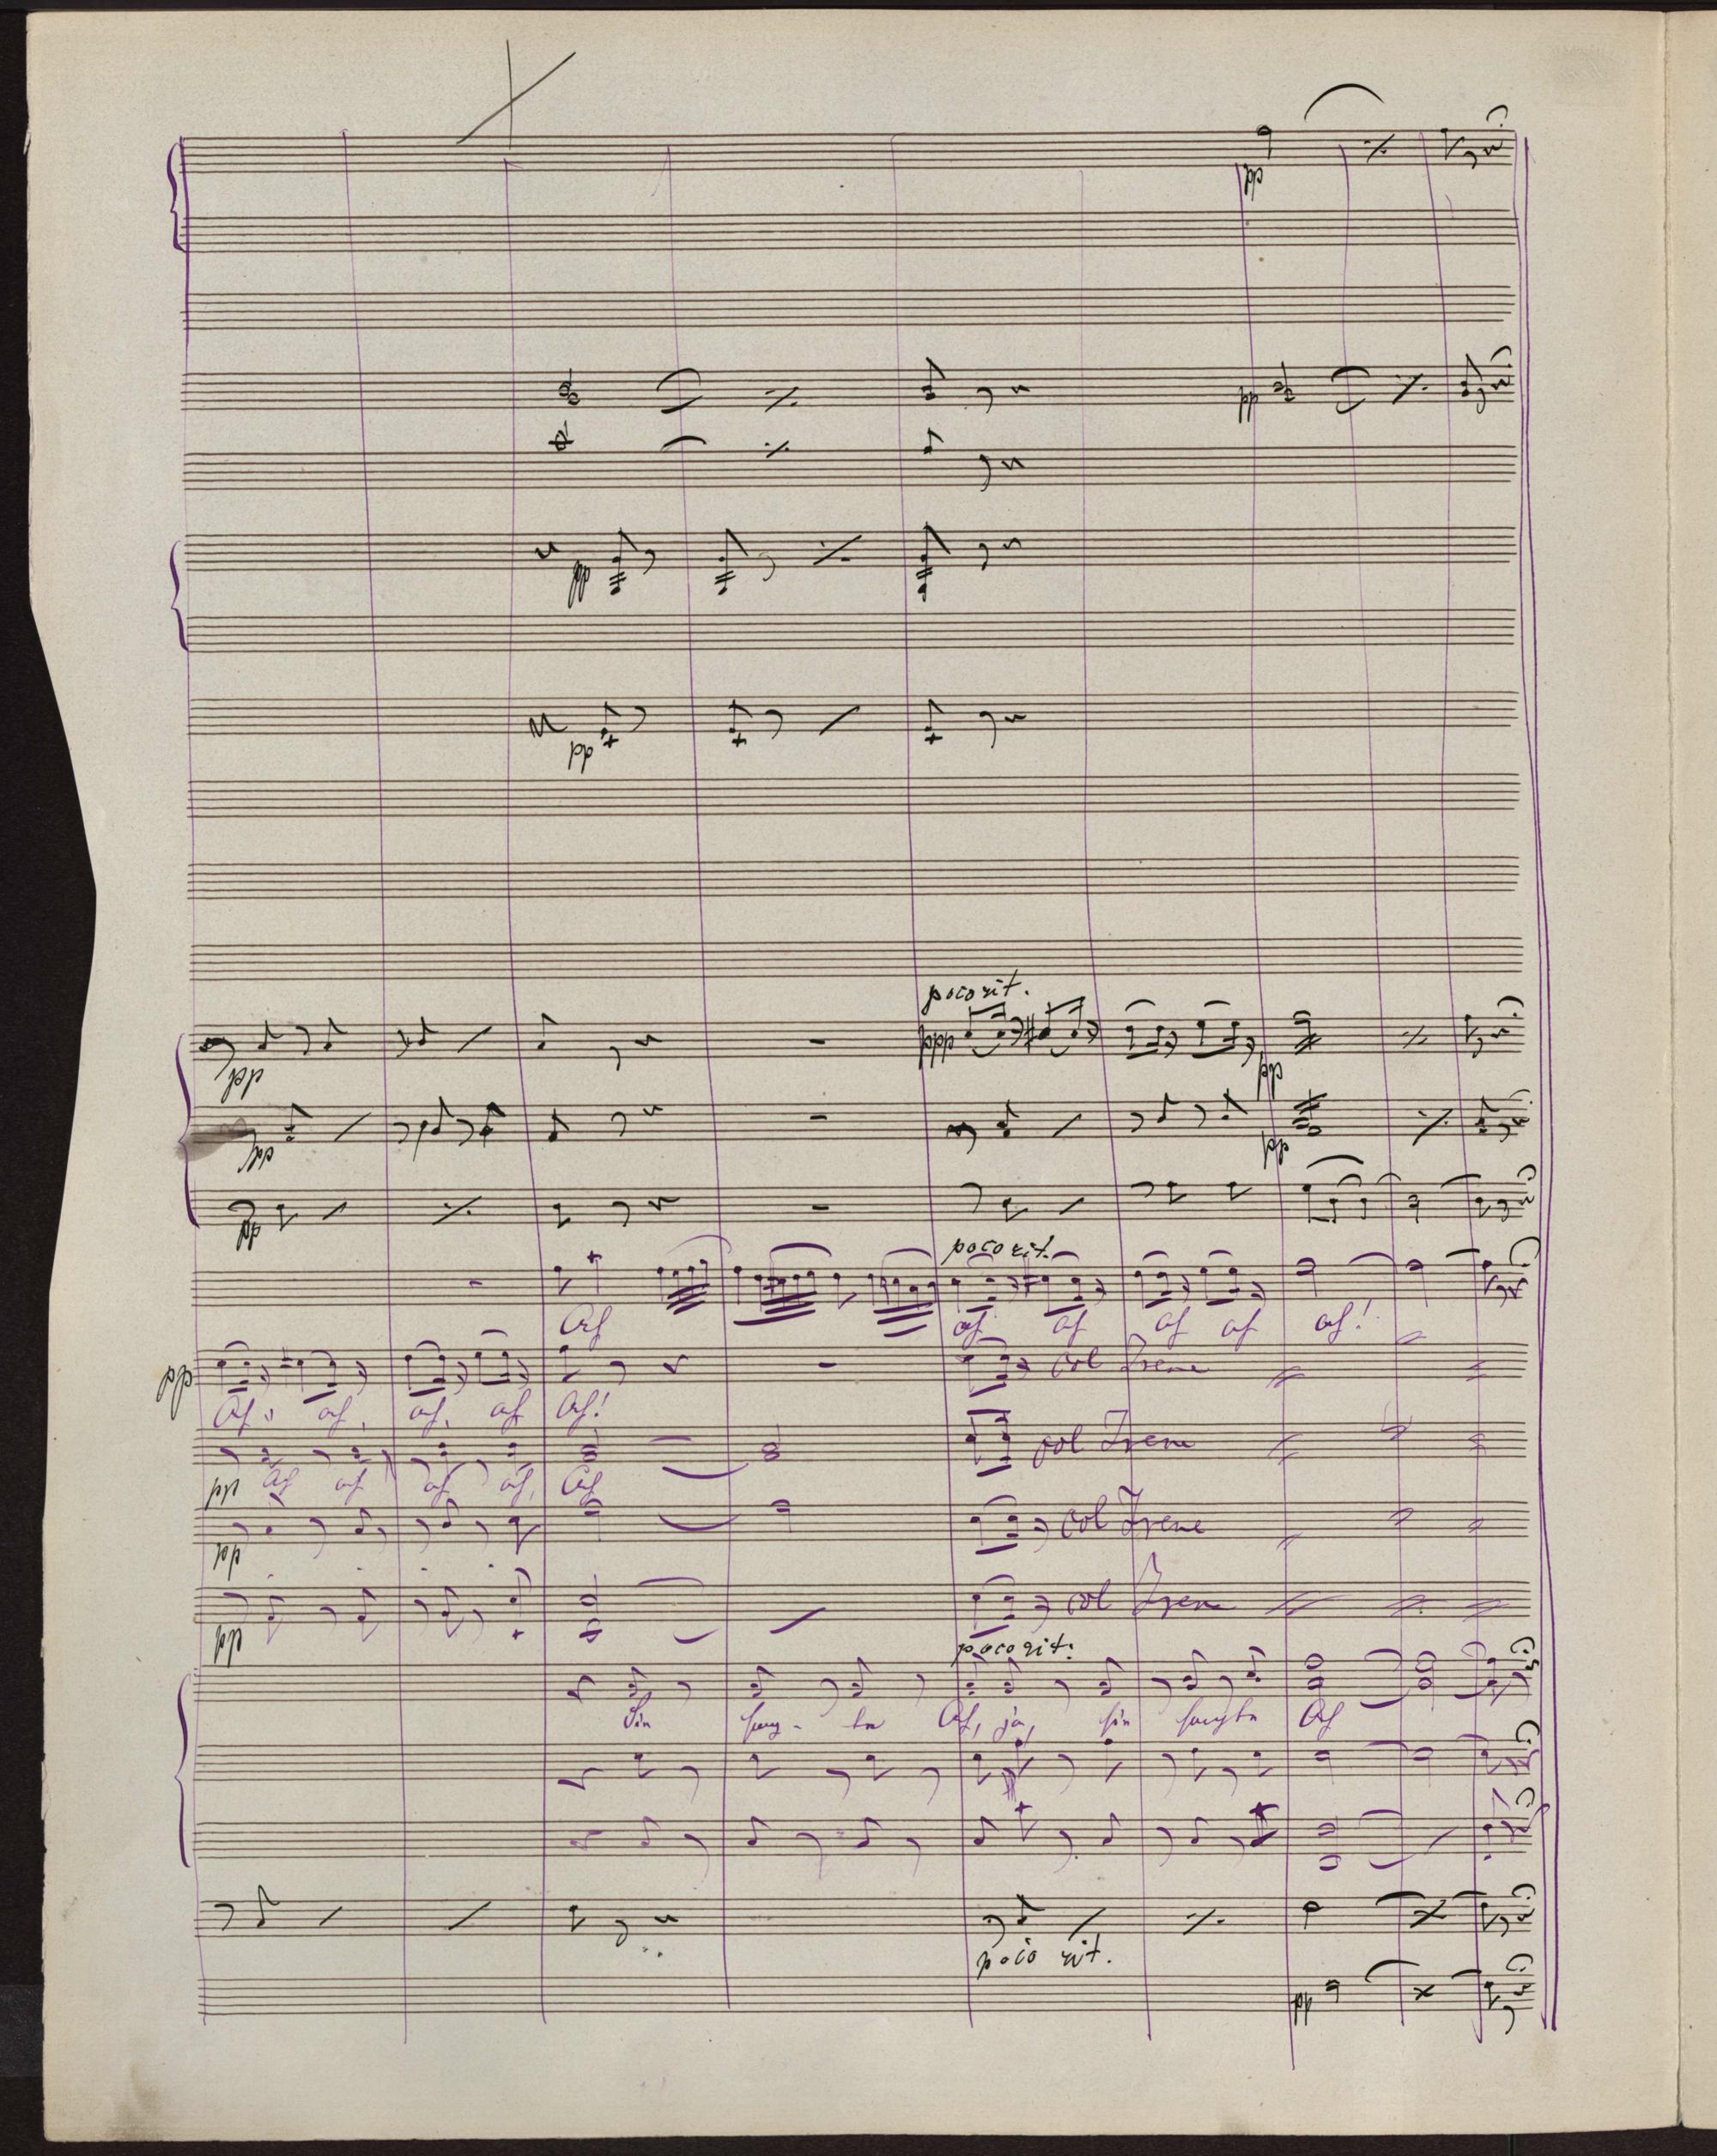 pp
pp
pp
pp
poco rit.
ppp
pp
pp
pp
pp
pp
poco rit.
Ach ach ach ach ach ach!
pp col Irene
Ach, ach, ach, ach Ach!
col Irene
pp Ach ach ach ach, Ach
pp col Irene
pp col Irene
poco rit:
Sie seufzte Ach, ja, sie seufzte Ach
poco rit.
pp